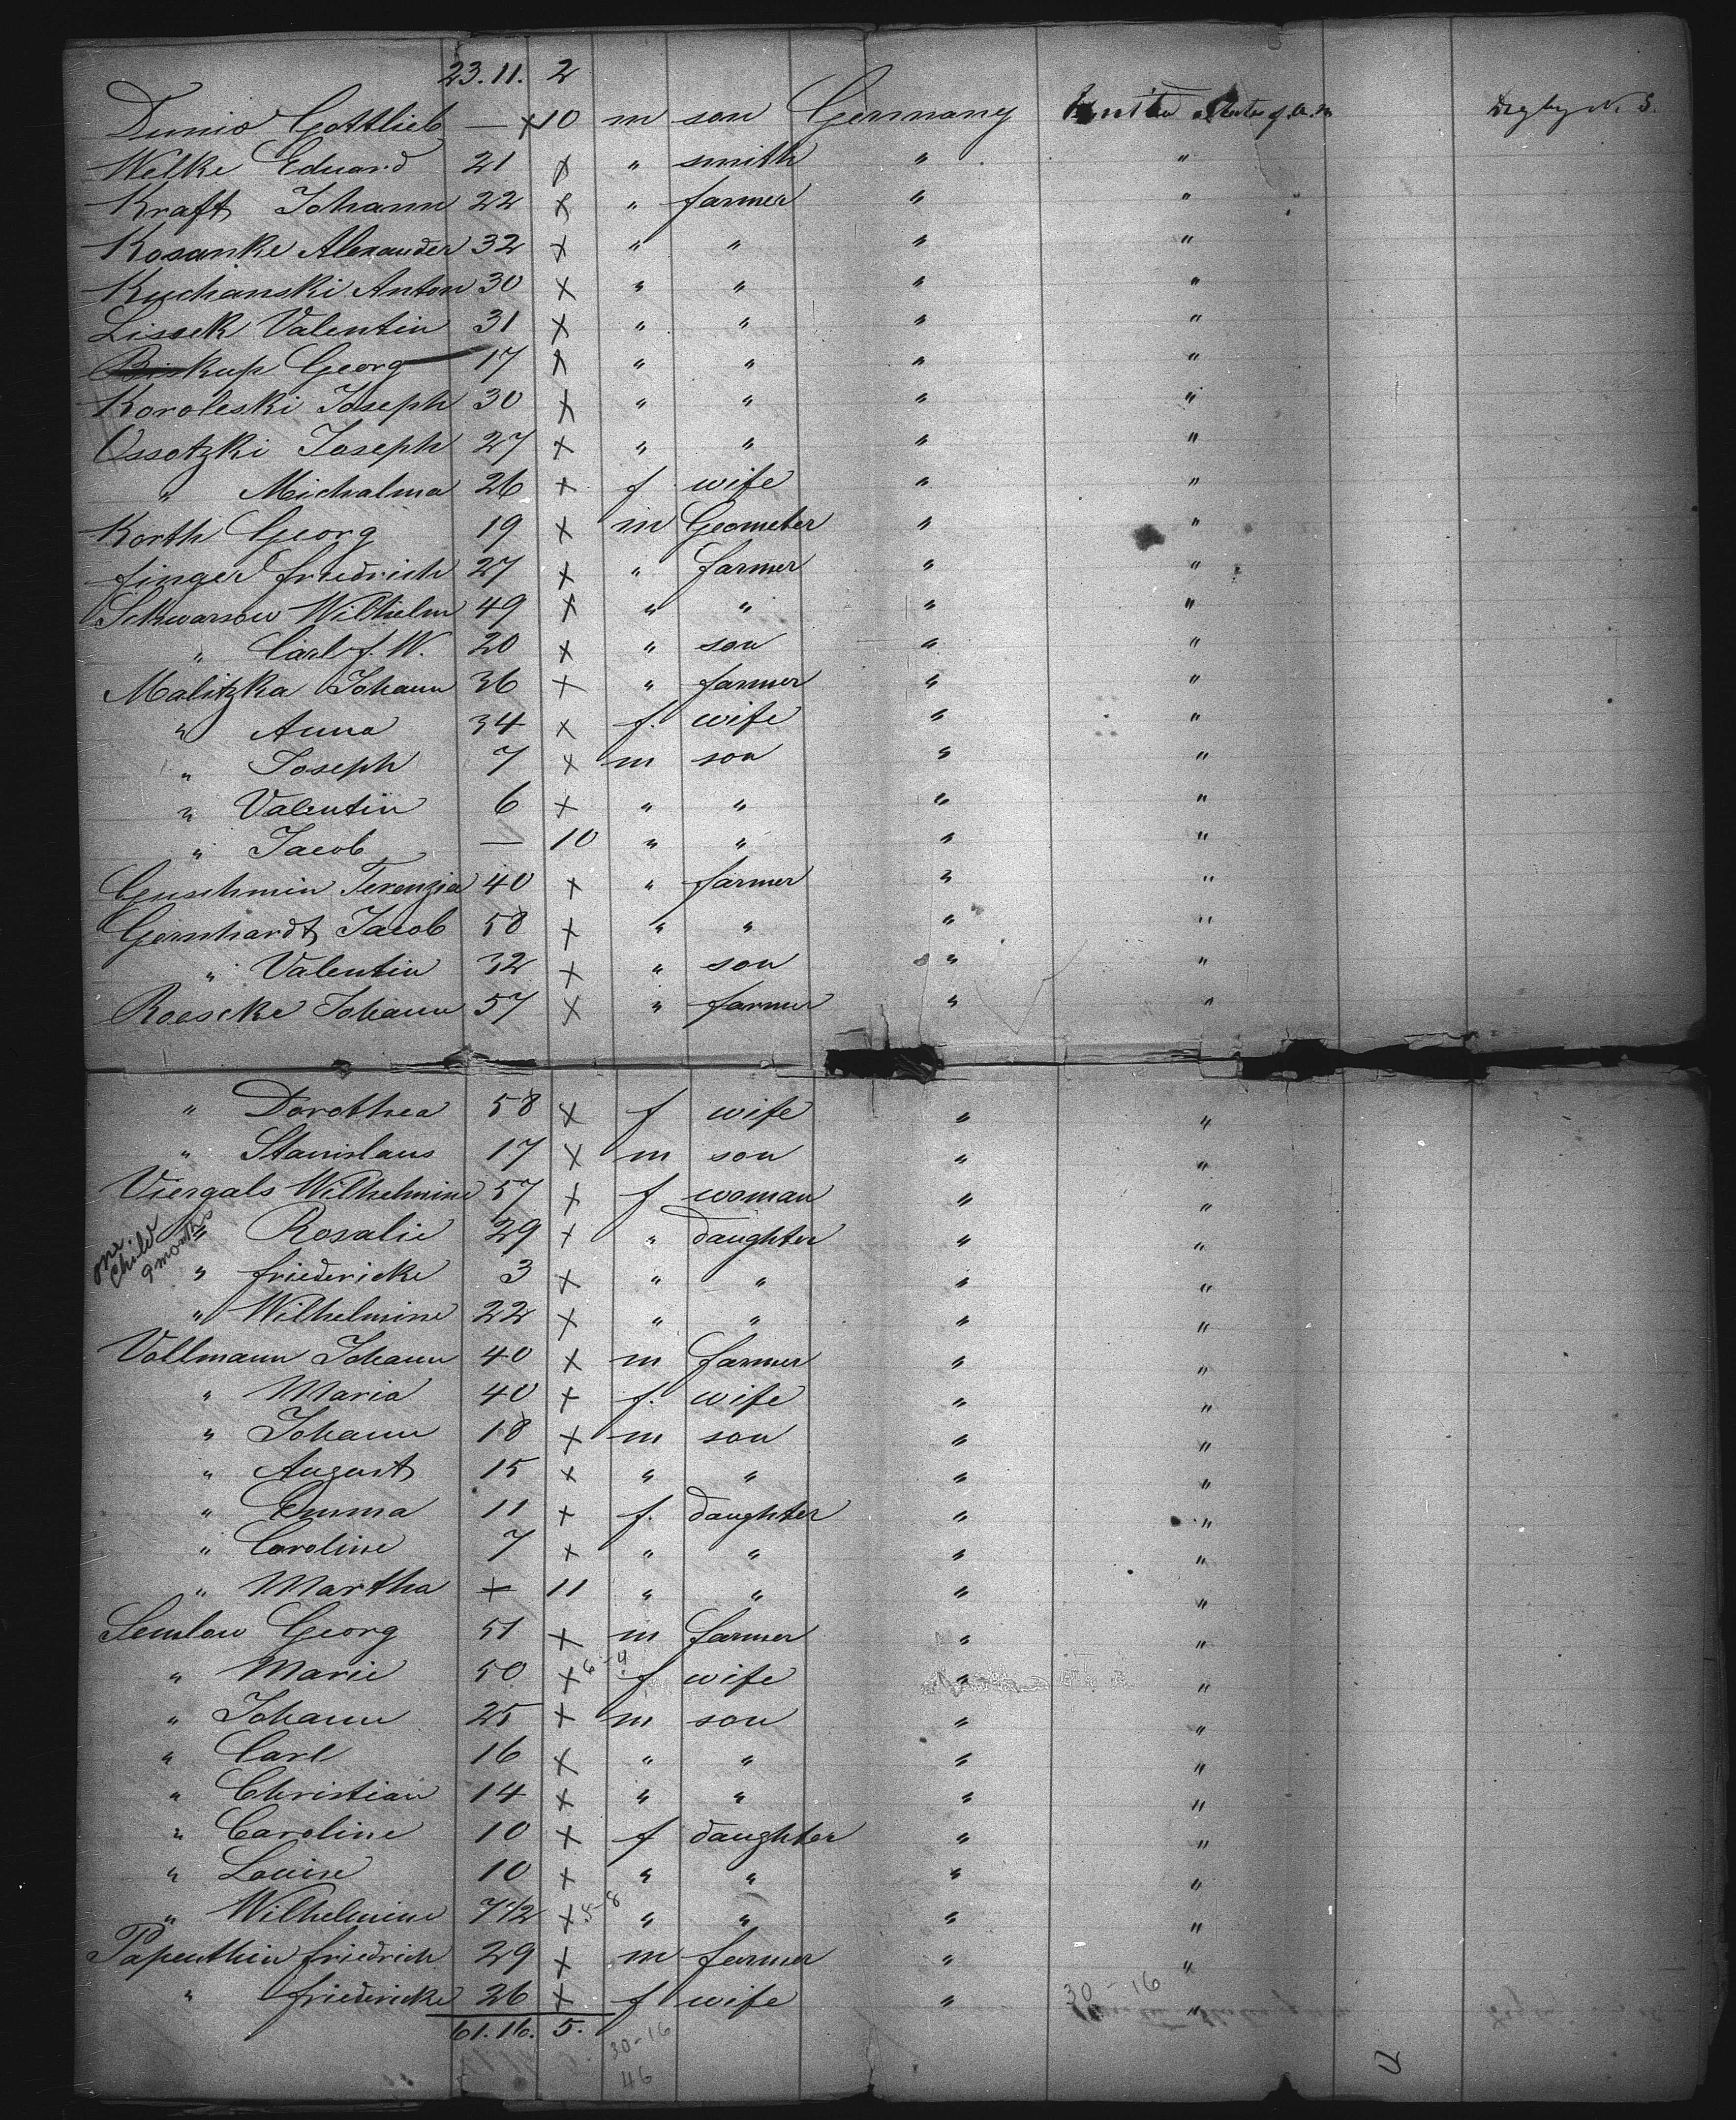 23. 11. 2
Dunio Gottlieb — x 10 m son Germany United States of Digby N. S.
Welke Eduard 21 x " smith " "
Kraft Johann 22 x " farmer " "
Kosanke Alexander 32 x " " " "
Kuchanski Anton 30 x " " " "
Lissek Valentin 31 x " " " "
Biskup Georg 17 x " " " "
Koroleski Joseph 30 x " " " "
Ossotzki Joseph 27 x " " " "
" Michalma 26 x f wife " "
Korth Georg 19 x m Geometer " "
finger friedrich 27 x " farmer " "
Schwarsow Wilhelm 49 x " " " "
" Carl f. W. 20 x " son " "
Malitzka Johann 36 x " farmer " "
" Anna 34 x f. wife " "
" Joseph 7 x m son " "
" Valentin 6 x " " " "
" Jacob — 10 " " " "
Guschmin Terenzia 40 x " farmer " "
Gernhardt Jacob 58 x " " " "
" Valentin 32 x " son " "
Roescke Johann 57 x " farmer " "
" Dorothea 58 x f wife " "
" Stanislaus 17 x m son " "
Viergals Wilhelmine 57 x f woman " "
one child 9 months
" Rosalie 29 x " daughter " "
" friedericke 3 x " " " "
" Wilhelmine 22 x " " " "
Vollmann Johann 40 x m farmer " "
" Maria 40 x f. wife " "
" Johann 18 x m son " "
" August 15 x " " " "
" Emma 11 x f. daughter " "
" Caroline 7 x " " " "
" Martha + 11 " " " "
Semlow Georg 51 x m farmer " "
" Marie 50 x 6-4 f wife " "
" Johann 25 x m son " "
" Carl 16 x " " " "
" Christian 14 x " " " "
" Caroline 10 x f daughter " "
" Louise 10 x " " " "
" Wilhelmine 7 1/2 x 5-8 " " " "
Papenthin friedrich 29 x m farmer " "
" friedericke 26 x f wife " 30-16 "
61. 16. 5. 30-16
46